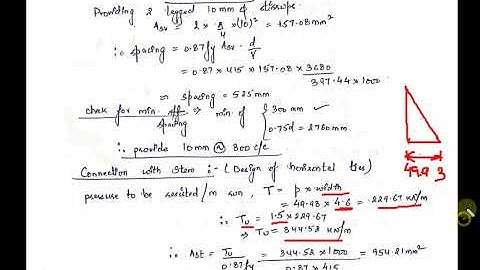 Providing 2 legged 10mm ϕ stirrups.
Asv = 2 × π/4 ×(10)² = 157.08mm²
∴ spacing = 0.87fy Asv · d/V
= 0.87 × 415 × 157.08 × 3680/397.44×1000
≈ spacing = 525mm
check for min. eff. spacing ⇒ min. of { 300mm ✓
0.75d = 2760mm
∴ provide 10mm @ 300 c/c
Connection with Stem :- (Design of horizontal ties)
pressure to be resisted/m run, T = p × width
= 49.93 × 4.6 = 229.67 kN/m
∴ Tu = 1.5×229.67
⇒ Tu = 344.52 kN/m
∴ Ast = Tu/0.87fy = 344.52 × 1000/0.87 × 415 = 954.21mm²
49.93